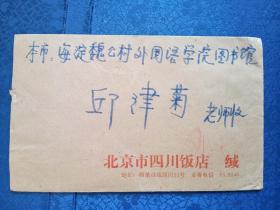 本市：海淀魏公村外国语学院图书馆
邱津菊 老师收
北京市四川饭店 缄